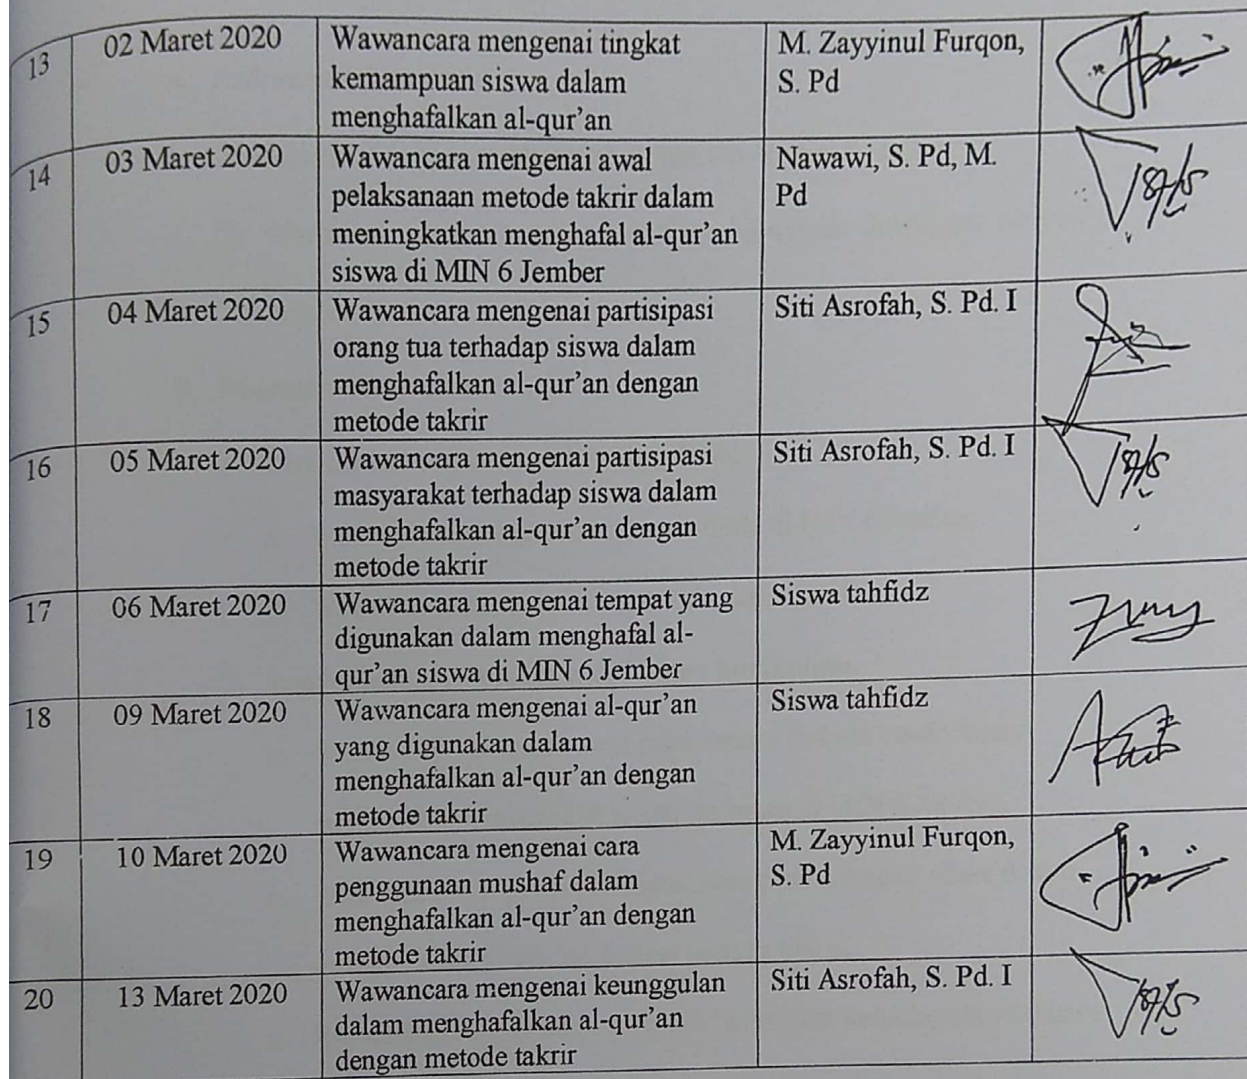 13
02 Maret 2020
Wawancara mengenai tingkat
kemampuan siswa dalam
menghafalkan al-qur’an
M. Zayyinul Furqon,
S. Pd
14
03 Maret 2020
Wawancara mengenai awal
pelaksanaan metode takrir dalam
meningkatkan menghafal al-qur’an
siswa di MIN 6 Jember
Nawawi, S. Pd, M.
Pd
15
04 Maret 2020
Wawancara mengenai partisipasi
orang tua terhadap siswa dalam
menghafalkan al-qur’an dengan
metode takrir
Siti Asrofah, S. Pd. I
16
05 Maret 2020
Wawancara mengenai partisipasi
masyarakat terhadap siswa dalam
menghafalkan al-qur’an dengan
metode takrir
Siti Asrofah, S. Pd. I
17
06 Maret 2020
Wawancara mengenai tempat yang
digunakan dalam menghafal al-
qur’an siswa di MIN 6 Jember
Siswa tahfidz
18
09 Maret 2020
Wawancara mengenai al-qur’an
yang digunakan dalam
menghafalkan al-qur’an dengan
metode takrir
Siswa tahfidz
19
10 Maret 2020
Wawancara mengenai cara
penggunaan mushaf dalam
menghafalkan al-qur’an dengan
metode takrir
M. Zayyinul Furqon,
S. Pd
20
13 Maret 2020
Wawancara mengenai keunggulan
dalam menghafalkan al-qur’an
dengan metode takrir
Siti Asrofah, S. Pd. I